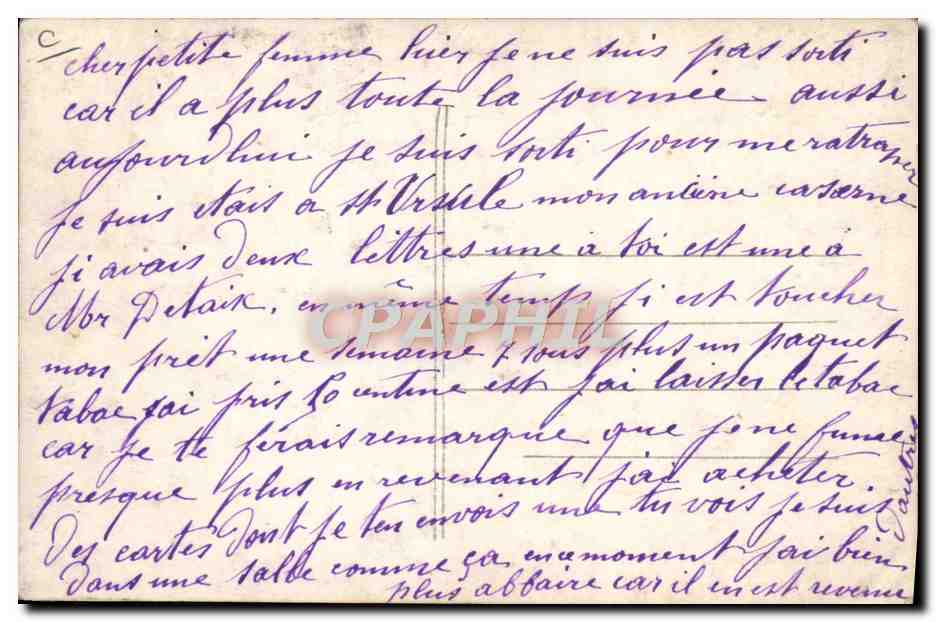 cher petite femme hier je ne suis pas sorti
car il a plus toute la journée aussi
aujourdhui je suis sorti pour me ratraper
je suis etais a st Ursule mon anciène caserne
ji avais deux lettres une à toi est une à
Mr Detaix. en même temp ji est toucher
mon prèt une semaine 7 sous plus un paquet
tabac jai pris le centime est jai laisser le tabac
car je te ferais remarque que je ne fume
presque plus en revenant jai acheter.
Des cartes dont je ten envois une tu vois je suis
Dans une salle comme ça en ce moment jai bien
plus abbaire car il en est revenu
Dautres
CPAPHIL